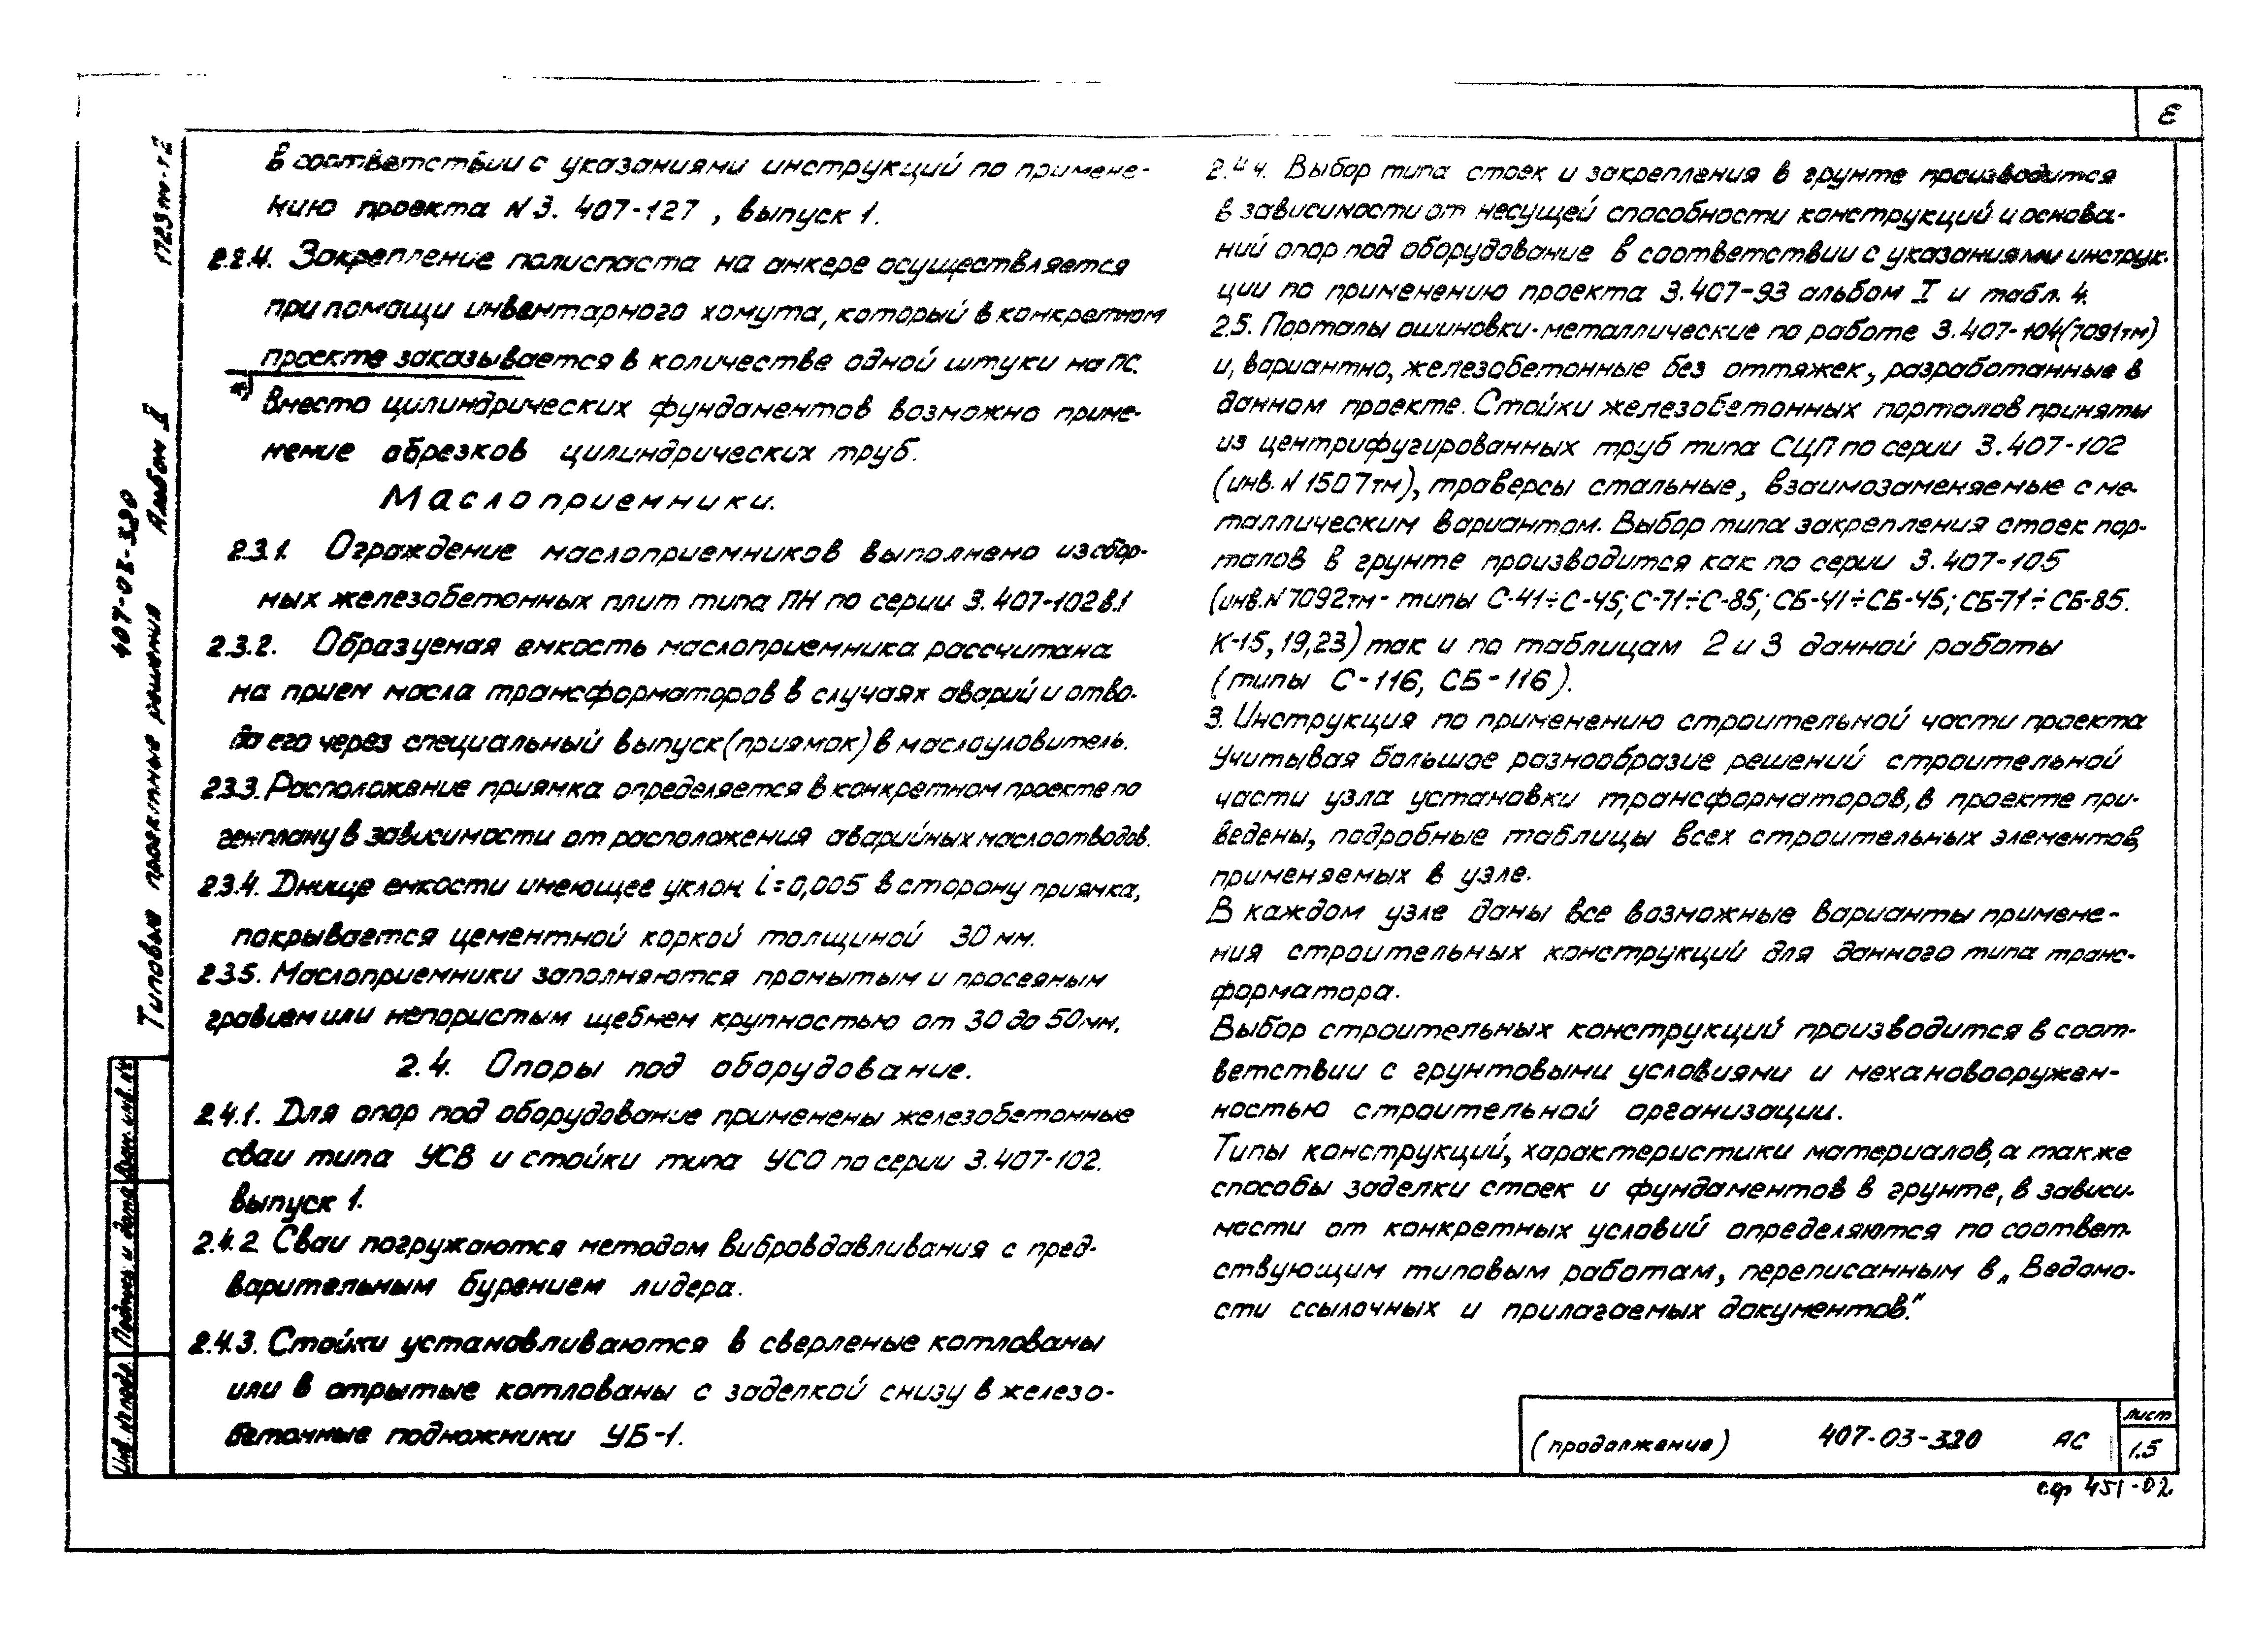 в соответствии с указаниями инструкций по примене-
нию проекта N 3.407-127, выпуск 1.
2.2.4. Закрепление полиспаста на анкере осуществляется
при помощи инвентарного хомута, который в конкретном
проекте заказывается в количестве одной штуки на ПС.
*) Вместо цилиндрических фундаментов возможно приме-
нение обрезков цилиндрических труб.
Маслоприемники.
2.3.1. Ограждение маслоприемников выполнено из сбор-
ных железобетонных плит типа ПН по серии 3.407-102 в.1
2.3.2. Образуемая емкость маслоприемника рассчитана
на прием масла трансформаторов в случаях аварий и отво-
да его через специальный выпуск (приямок) в маслоуловитель.
2.3.3. Расположение приямка определяется в конкретном проекте по
генплану в зависимости от расположения аварийных маслоотводов.
2.3.4. Днище емкости имеющее уклон i=0,005 в сторону приямка,
покрывается цементной коркой толщиной 30 мм.
2.3.5. Маслоприемники заполняются промытым и просеяным
гравием или непористым щебнем крупностью от 30 до 50 мм,
2.4. Опоры под оборудование.
2.4.1. Для опор под оборудование применены железобетонные
сваи типа УСВ и стойки типа УСО по серии 3.407-102.
выпуск 1.
2.4.2 Сваи погружаются методом вибровдавливания с пред-
варительным бурением лидера.
2.4.3. Стойки установливаются в сверленые котлованы
или в отрытые котлованы с заделкой снизу в железо-
бетонные подножники УБ-1.
2.4.4. Выбор типа стоек и закрепления в грунте производится
в зависимости от несущей способности конструкций и основа-
ний опор под оборудование в соответствии с указаниями инструк-
ции по применению проекта 3.407-93 альбом I и табл. 4.
2.5. Порталы ошиновки - металлические по работе 3.407-104 (7091тм)
и, вариантно, железобетонные без оттяжек, разработанные в
данном проекте. Стойки железобетонных порталов приняты
из центрифугированных труб типа СЦП по серии 3.407-102
(инв. N 1507тм), траверсы стальные, взаимозаменяемые с ме-
таллическим вариантом. Выбор типа закрепления стоек пор-
талов в грунте производится как по серии 3.407-105
(инв. N 7092тм - типы С-41÷С-45; С-71÷С-85; СБ-41÷СБ-45; СБ-71÷СБ-85.
К-15, 19, 23) так и по таблицам 2 и 3 данной работы
(типы С-116, СБ-116).
3. Инструкция по применению строительной части проекта
Учитывая большое разнообразие решений строительной
части узла установки трансформаторов, в проекте при-
ведены, подробные таблицы всех строительных элементов,
применяемых в узле.
В каждом узле даны все возможные варианты примене-
ния строительных конструкций для данного типа транс-
форматора.
Выбор строительных конструкций производится в соот-
ветствии с грунтовыми условиями и механовооружен-
ностью строительной организации.
Типы конструкций, характеристики материалов, а также
способы заделки стоек и фундаментов в грунте, в зависи-
мости от конкретных условий определяются по соответ-
ствующим типовым работам, переписанным в „Ведомо-
сти ссылочных и прилагаемых документов."
(продолжение) 407-03-320 АС
лист
1.5
с.ф 451-02
Типовые проектные решения 407-03-320
Альбом II
1723тм-т2
Инв. № подл. Подпись и дата Взам. инв. №